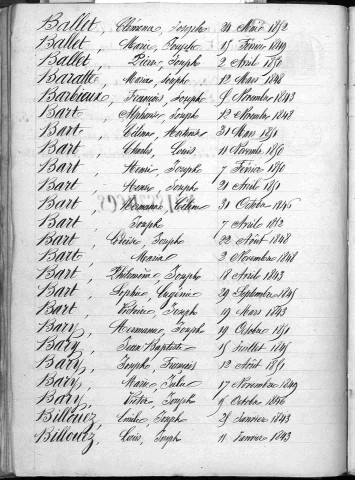 Ballet, Clémence, Joseph 24 Mai 1852
Ballet, Marie Joseph 15 Février 1849
Ballet Pierre Joseph 2 Avril 1850
Baratte, Marie Joseph 12 Mars 1848
Barbieux, François, Joseph 9 Novembre 1843
Bart, Alphonse, Joseph 12 Novembre 1848
Bart, 21 Mars 1851
Bart, Charles, Louis 11 Novembre 1850
Bart, Henri, Joseph 7 Février 1850
Bart, Henri, Joseph 21 Avril 1851
Bart, 31 Octobre 1845
Bart, Joseph 7 Avril 1852
Bart, Joseph 22 Août 1848
Bart, Maria 2 Novembre 1848
Bart, Philomène, Joseph 18 Avril 1843
Bart, Sophie, Eugénie 29 Septembre 1845
Bart, Victoire, Joseph 19 Mars 1843
Bary, Hermance, Joseph 19 Octobre 1851
Bary, Jean Baptiste 15 Juillet 1845
Bary, Joseph, François 12 Août 1851
Bary, Marie, Julie 17 Novembre 1849
Bary, Victor, Joseph 9 Octobre 1846
Billouez, Emile, Joseph 25 Janvier 1843
Billouez, Louis, Joseph 11 Janvier 1843